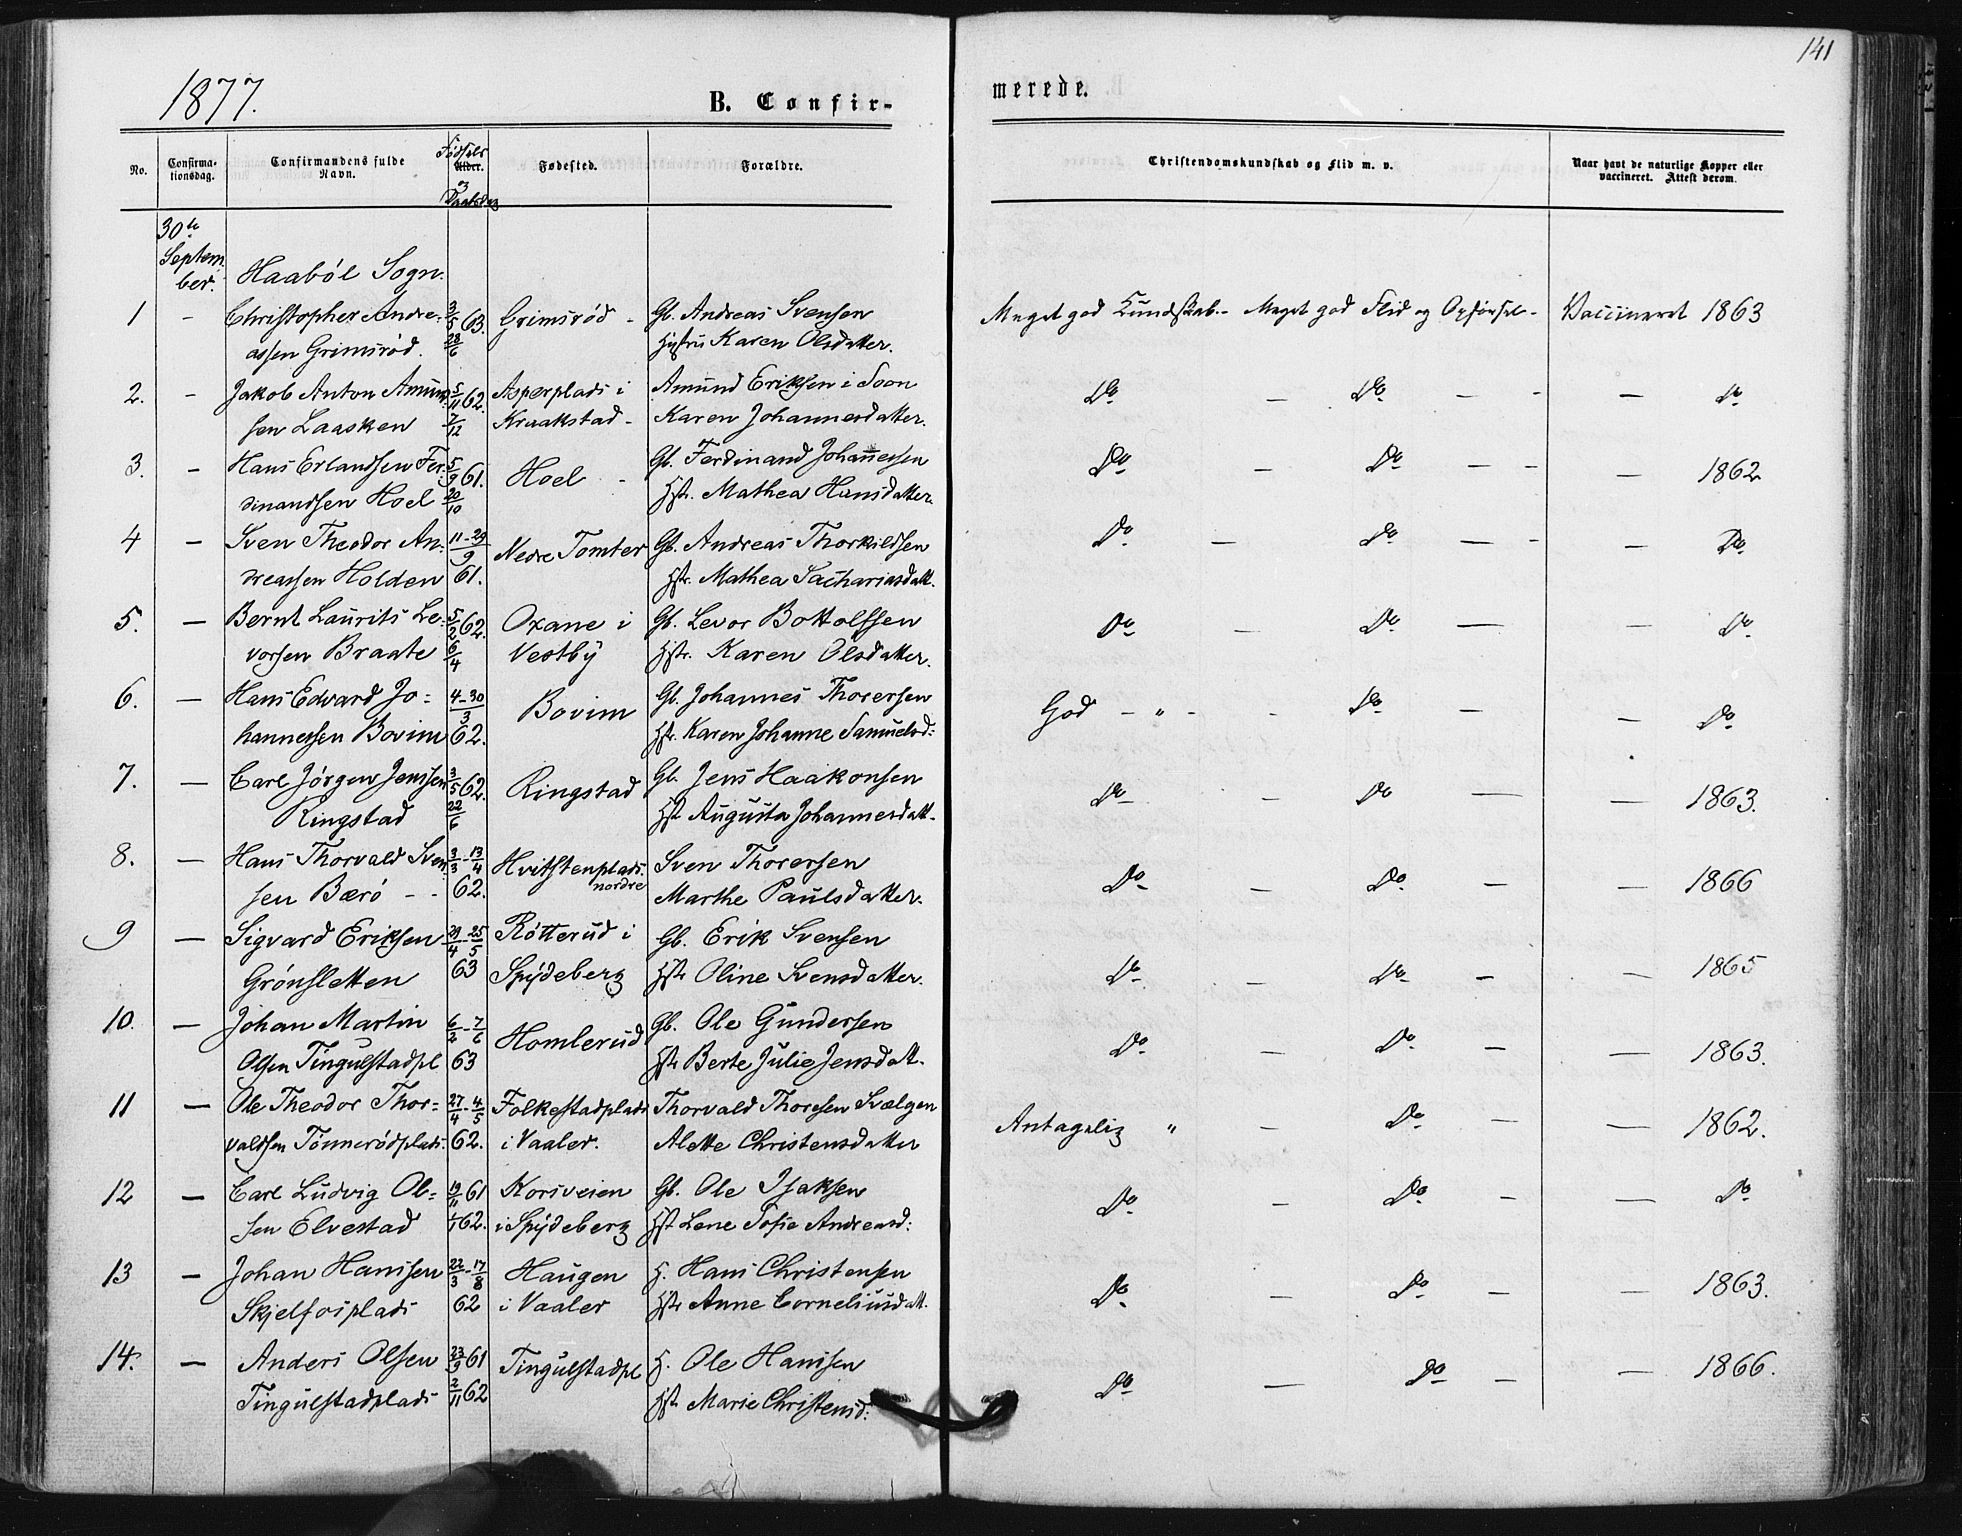 141
1877.
B. Confir-
merede.
No.
Confirma-
tionsdag.
Confirmandens fulde
Navn.
Fødsels
Alder.
og
Daabsdag
Fødested.
Forældre.
Christendomskundskab og Flid m. v.
Naar havt de naturlige Kopper eller
vaccineret. Attest derom.
30te
Septem
ber.
Haaböl Sogn.
1 - Christopher Andre- 3/5 63. Grimsrød - Gb. Andreas Svensen Meget god Kundskab. - Meget god Flid og Opförsel - Vaccineret 1863
assen Grimsrød. 28/6 Hustru Karen Olsdatter.
2. - Jakob Anton Amund 5/11 62. Asperplads i Amund Eriksen i Soon Do - Do - - - Do
sen Laasken 7/12 Kraakstad - Karen Johannesdatter.
3. - Hans Erlandsen Fer- 5/9 61. Hoel - Gb. Ferdinand Johannessen Do - Do - - - 1862
dinandsen Hoel 20/10 Hstr. Mathea Hansdatter.
4 - Sven Theodor An- 11-29/9 Nedre Tomter Gb. Andreas Thorkildsen Do - Do - - - Do.
dreassen Holden 61. Hstr. Mathea Sachariasdatt.
5. - Bernt Laurits Le- 5/2 62. Oxane i Gb. Levor Bottolfsen Do - Do - - Do
vorsen Braate 6/4 Vestby Hstr. Karen Olsdatter.
6. - Hans Edvard Jo- 4-30/3 Bovim Gb. Johannes Thorersen God - " - - Do - - Do
hannessen Bovim 62. Hstr. Karen Johanne Samuelsd:
7. - Carl Jörgen Jenssen 3/5 62. Ringstad Gb. Jens Haakonsen Do - Do - - 1863.
Ringstad 22/6 Hstr Augusta Johannesdatt.
8. - Hans Thorvald Sven 3/3-13/4 Hvitstenplads. Sven Thorersen Do - Do - - 1866
sen Bærö - - 62. nordre Marthe Paulsdatter.
9 - Sigvard Eriksen 29/4-25/5 Rötterud i Gb. Erik Svensen Do - Do - - 1865
Grönsletten 63 Spydeberg Hstr Oline Svensdatter.
10. - Johan Martin 6/2-7/6 Homlerud Gb. Ole Gundersen Do - Do - - 1863.
Olsen Tingulstadpl 63 Hstr Berte Julie Jensdatt.
11 - Ole Theodor Thor- 27/4-4/5 Folkestadplads Thorvald Thoresen Svælgen Antagelig " - Do - - 1862.
valdsen Tönnerödplads. 62. i Vaaler. Alette Christensdatter
12 - Carl Ludvig Ol- 19/11 61 Korsveien Gb. Ole Isaksen Do - Do - - Do
sen Elvestad 1/1 62. i Spydeberg Hstr Lene Sofie Andreasd:
13 - Johan Hansen 22/3-17/8 Haugen H. Hans Christensen Do - Do - - 1863.
Skjelfosplads 62 i Vaaler Hstr Anne Corneliusdatt.
14. - Anders Olsen 23/9 61 Tingulstadpl H. Ole Hansen Do - Do - - 1866.
Tingulstadplads 2/11 62 Hstr. Marie Christensd: